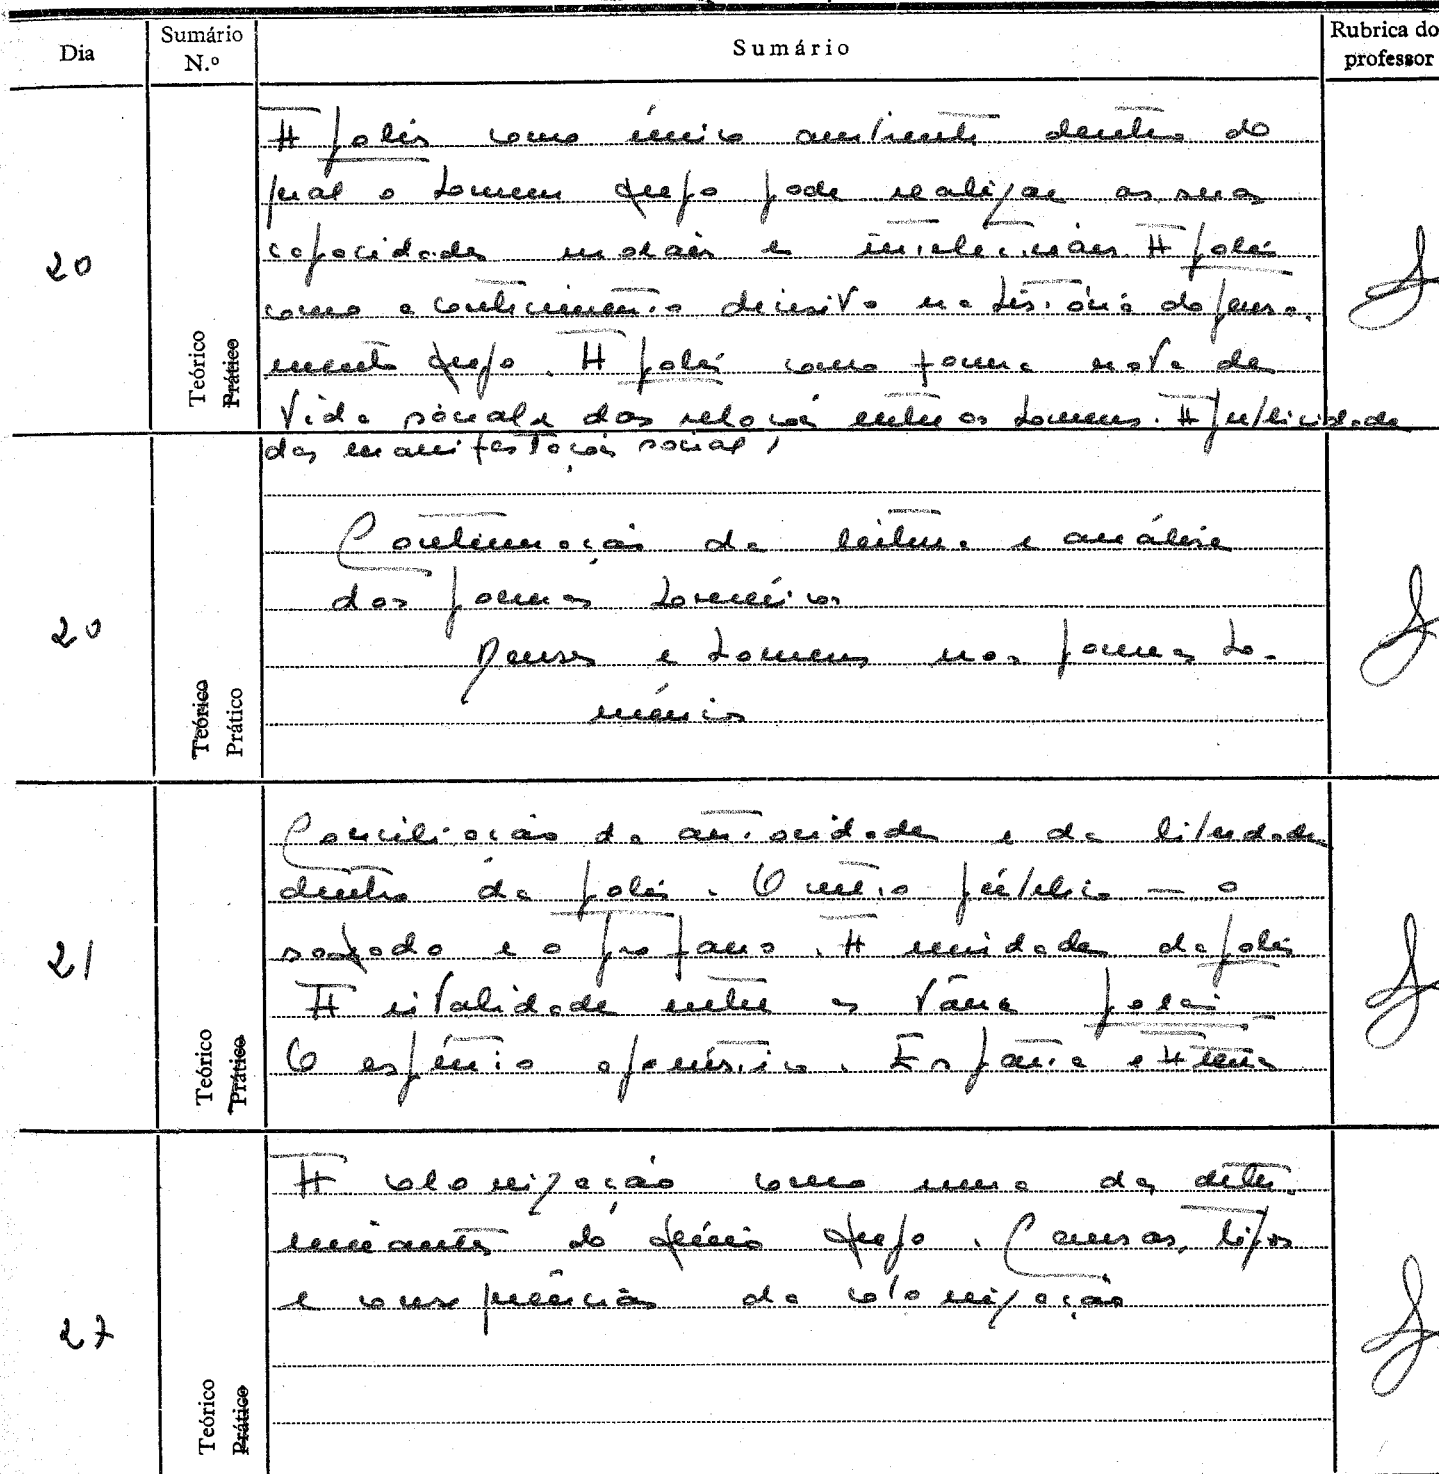 Dia
Sumário N.º
Sumário
Rubrica do professor
20
Teórico
Prático
A polis como único ambiente dentro do
qual o homem grego pode realizar as suas
capacidades morais e intelectuais. A polis
como acontecimento decisivo na história do pensa-
mento grego. A polis como forma nova de
vida social e das relações entre os homens. A publicidade
das manifestações sociais,
20
Teórico
Prático
Continuação da leitura e análise
dos poemas homéricos
Deuses e homens nos poemas ho-
méricos
21
Teórico
Prático
Conciliação da autoridade e da liberdade
dentro da polis. O culto público — o
sagrado e o profano. A unidade da polis
A rivalidade entre as várias poleis
O espírito agonístico. Esparta e Atenas
27
Teórico
Prático
A colonização como uma das deter-
minantes do génio grego. Causas, tipos
e consequências da colonização